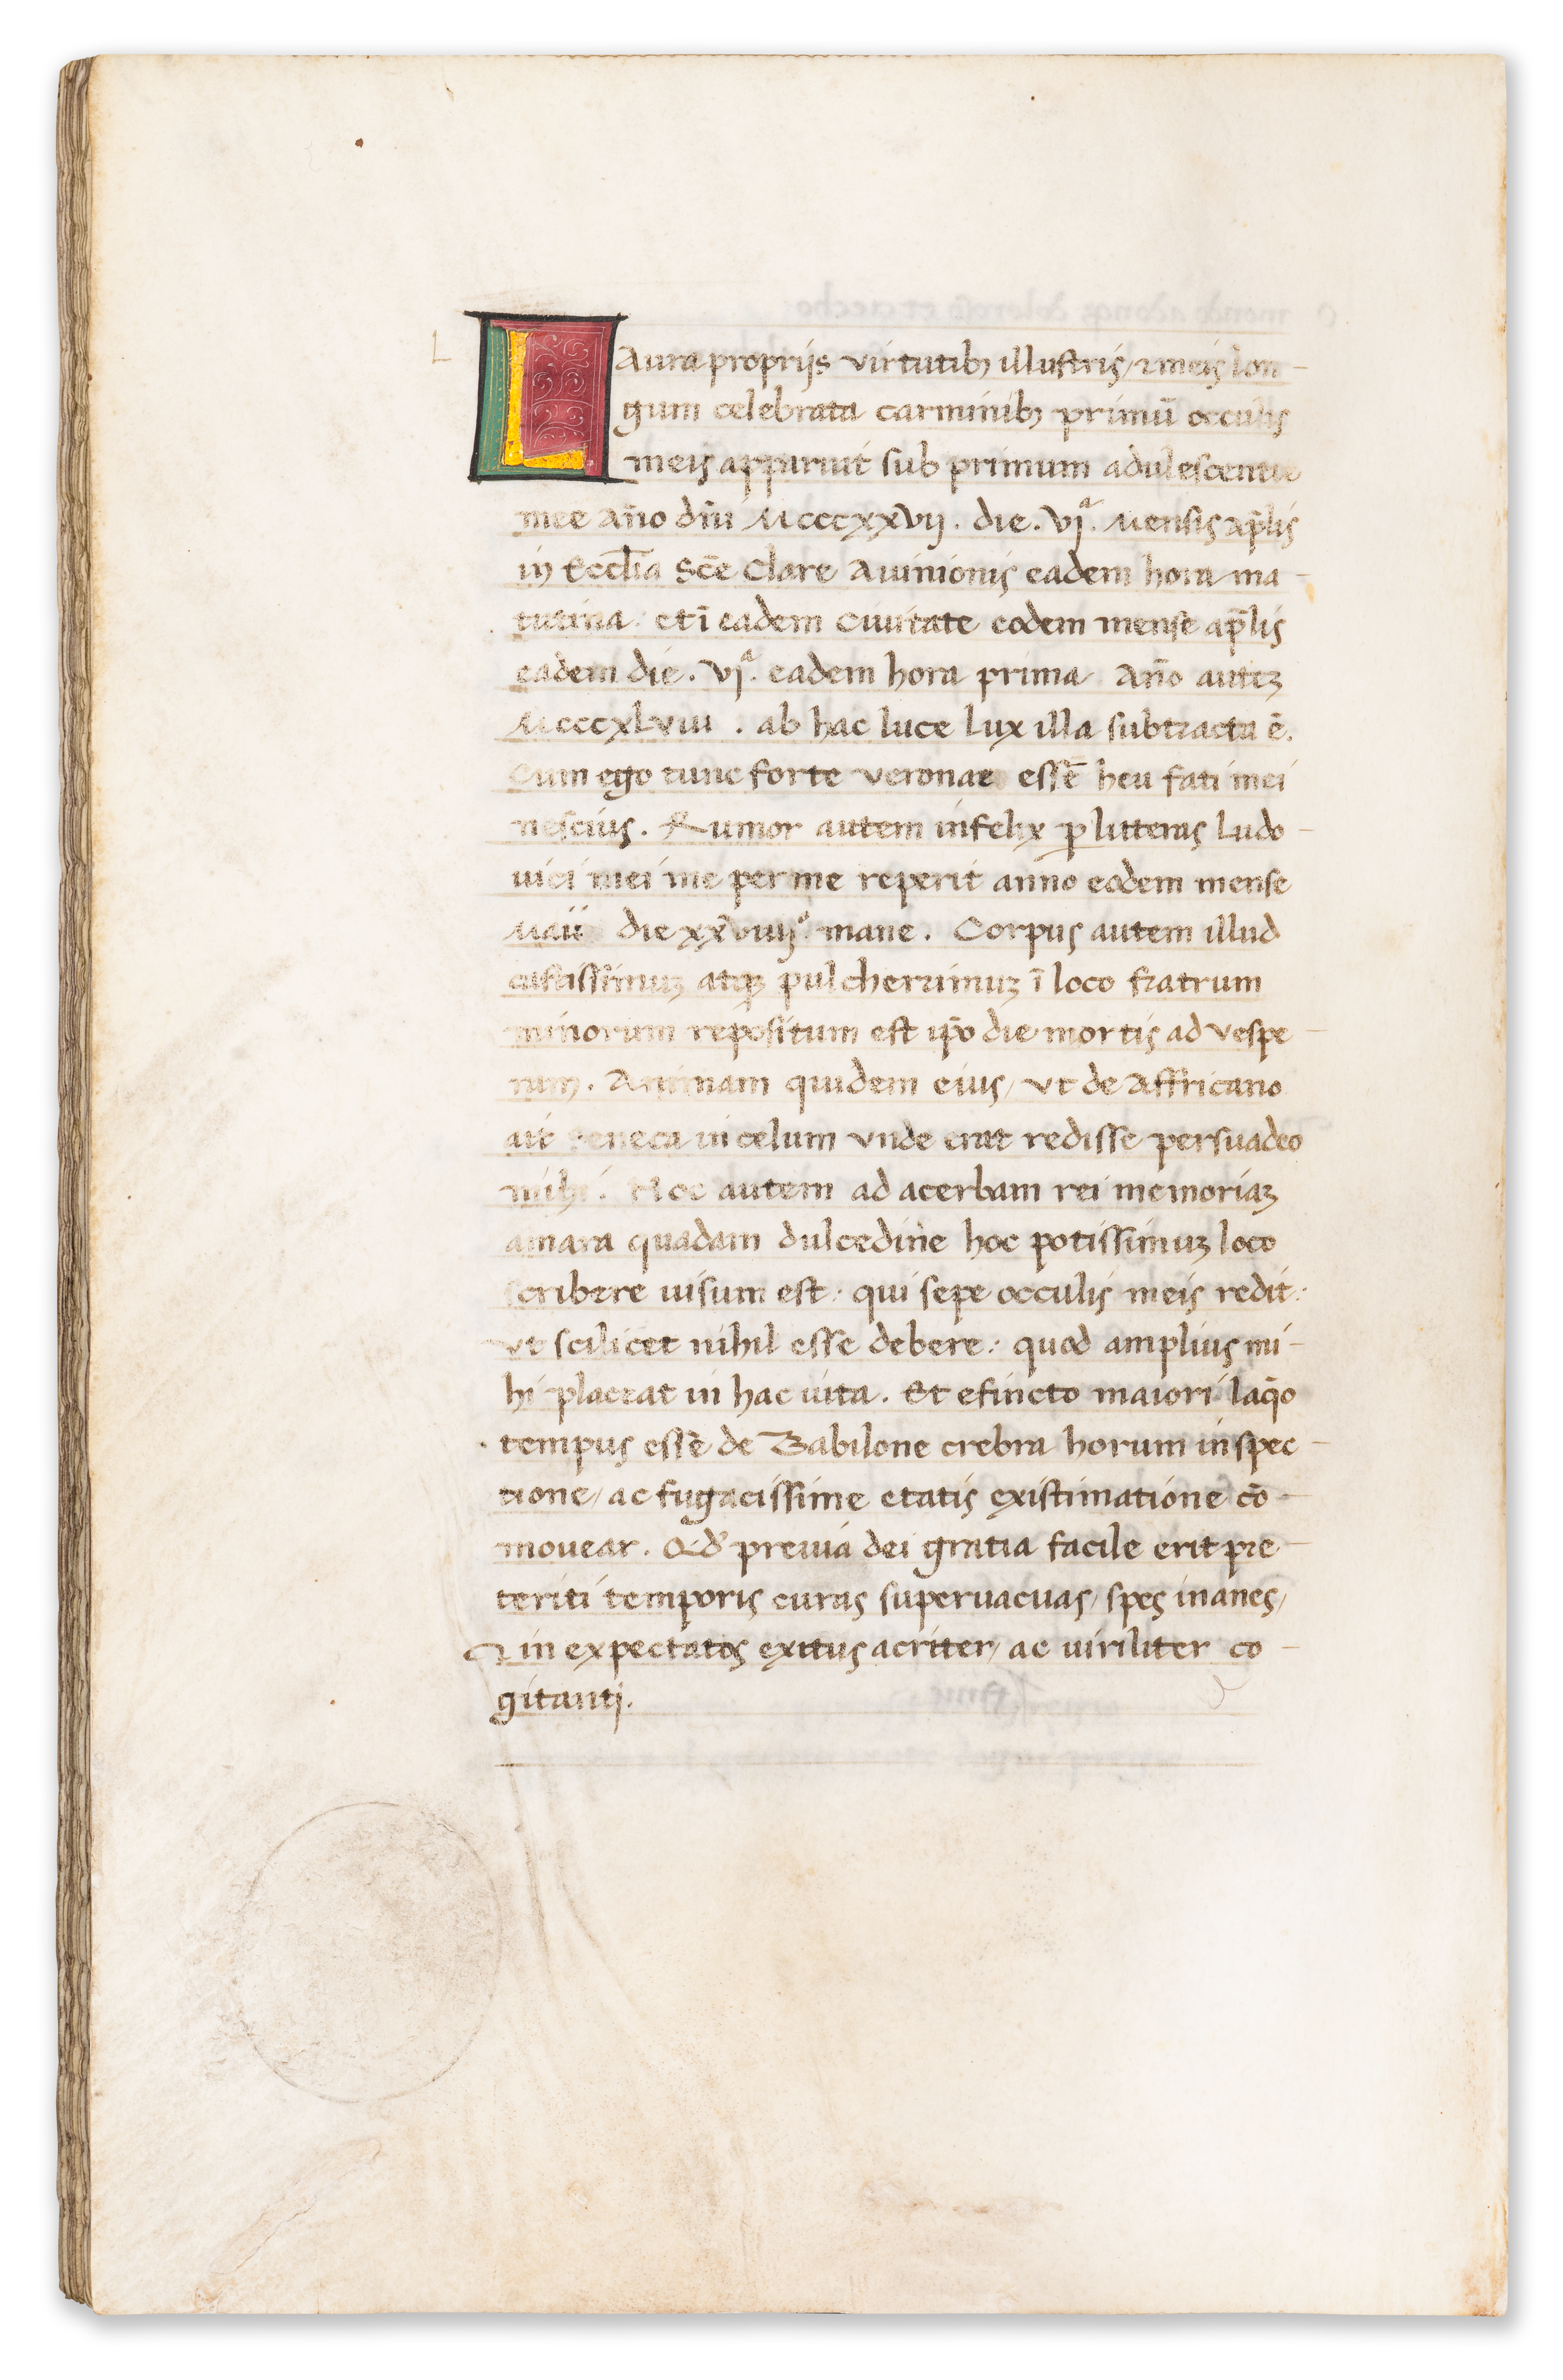 LAura proprijs virtutibꝫ illustris, ⁊ meis lon-
gum celebrata carminibꝫ primū occulis
meis apparuit sub primum adulescentie
mee Año dñi Mcccxxvij. die. vjª. Mensis ap̄lis
in Eccl̄ia Sc̄e Clare Auinionis eadem hora ma-
tutina: et ī eadem Ciuitate eodem mense ap̄lis
eadem die. vjª. eadem hora prima Año auteꝫ
Mcccxlviii . ab hac luce lux illa subtracta ē.
Cum ego tunc forte veronae essē heu fati mei
nescius. Rumor autem infelix ꝑ litteras Ludo-
uici mei me per me reperit anno eodem mense
Maii die xxviiijº mane. Corpus autem illud
castissimuꝫ atqꝫ pulcherrimuꝫ ī loco fratrum
minorum repositum est ip̄o die mortis ad vespe-
rum. Animam quidem eius, vt de Affricano
ait Seneca in celum vnde erat redisse persuadeo
mihi. Hoc autem ad acerbam rei memoriaꝫ
amara quadam dulcedine hoc potissimuꝫ loco
scribere uisum est: qui sepe occulis meis redit:
vt scilicet nihil esse debere: quod amplius mi-
hi placeat in hac uita. Et efincto maiori laq̄o
tempus esse de Babilone crebra horum inspec-
tione, ac fugacissime etatis existimatione cō-
mouear. Qd' preuia dei gratia facile erit pre-
teriti temporis curas superuacuas, spes inanes,
⁊ in expectatos exitus acriter, ac uiriliter co-
gitanti.